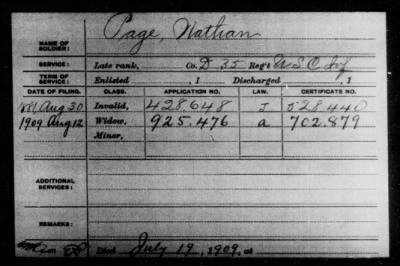 NAME OF SOLDIER: Page, Nathan
SERVICE: Late rank, Co. D 35 Reg't U.S.C. Inf
TERM OF SERVICE: Enlisted , 1 Discharged , 1
DATE OF FILING. CLASS. APPLICATION NO. LAW. CERTIFICATE NO.
Aug 30 Invalid, 428.648 J 528.440
1909 Aug 12 Widow, 925.476 a 702.879
Minor,
ADDITIONAL SERVICES:
REMARKS:
Died July 19, 1909, at